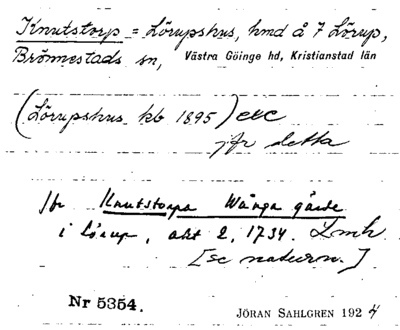 Knutstorp = Lörupshus, hmd å 7 Lörup,
Brönnestads sn, Västra Göinge hd, Kristianstad län
(Lörupshus kb 1895) etc
jfr detta
jfr Knutstorps Wånga gärde
i Lörup, akt 2, 1734. Lmh.
[se naturn.]
Nr 5354.
JÖRAN SAHLGREN 1924